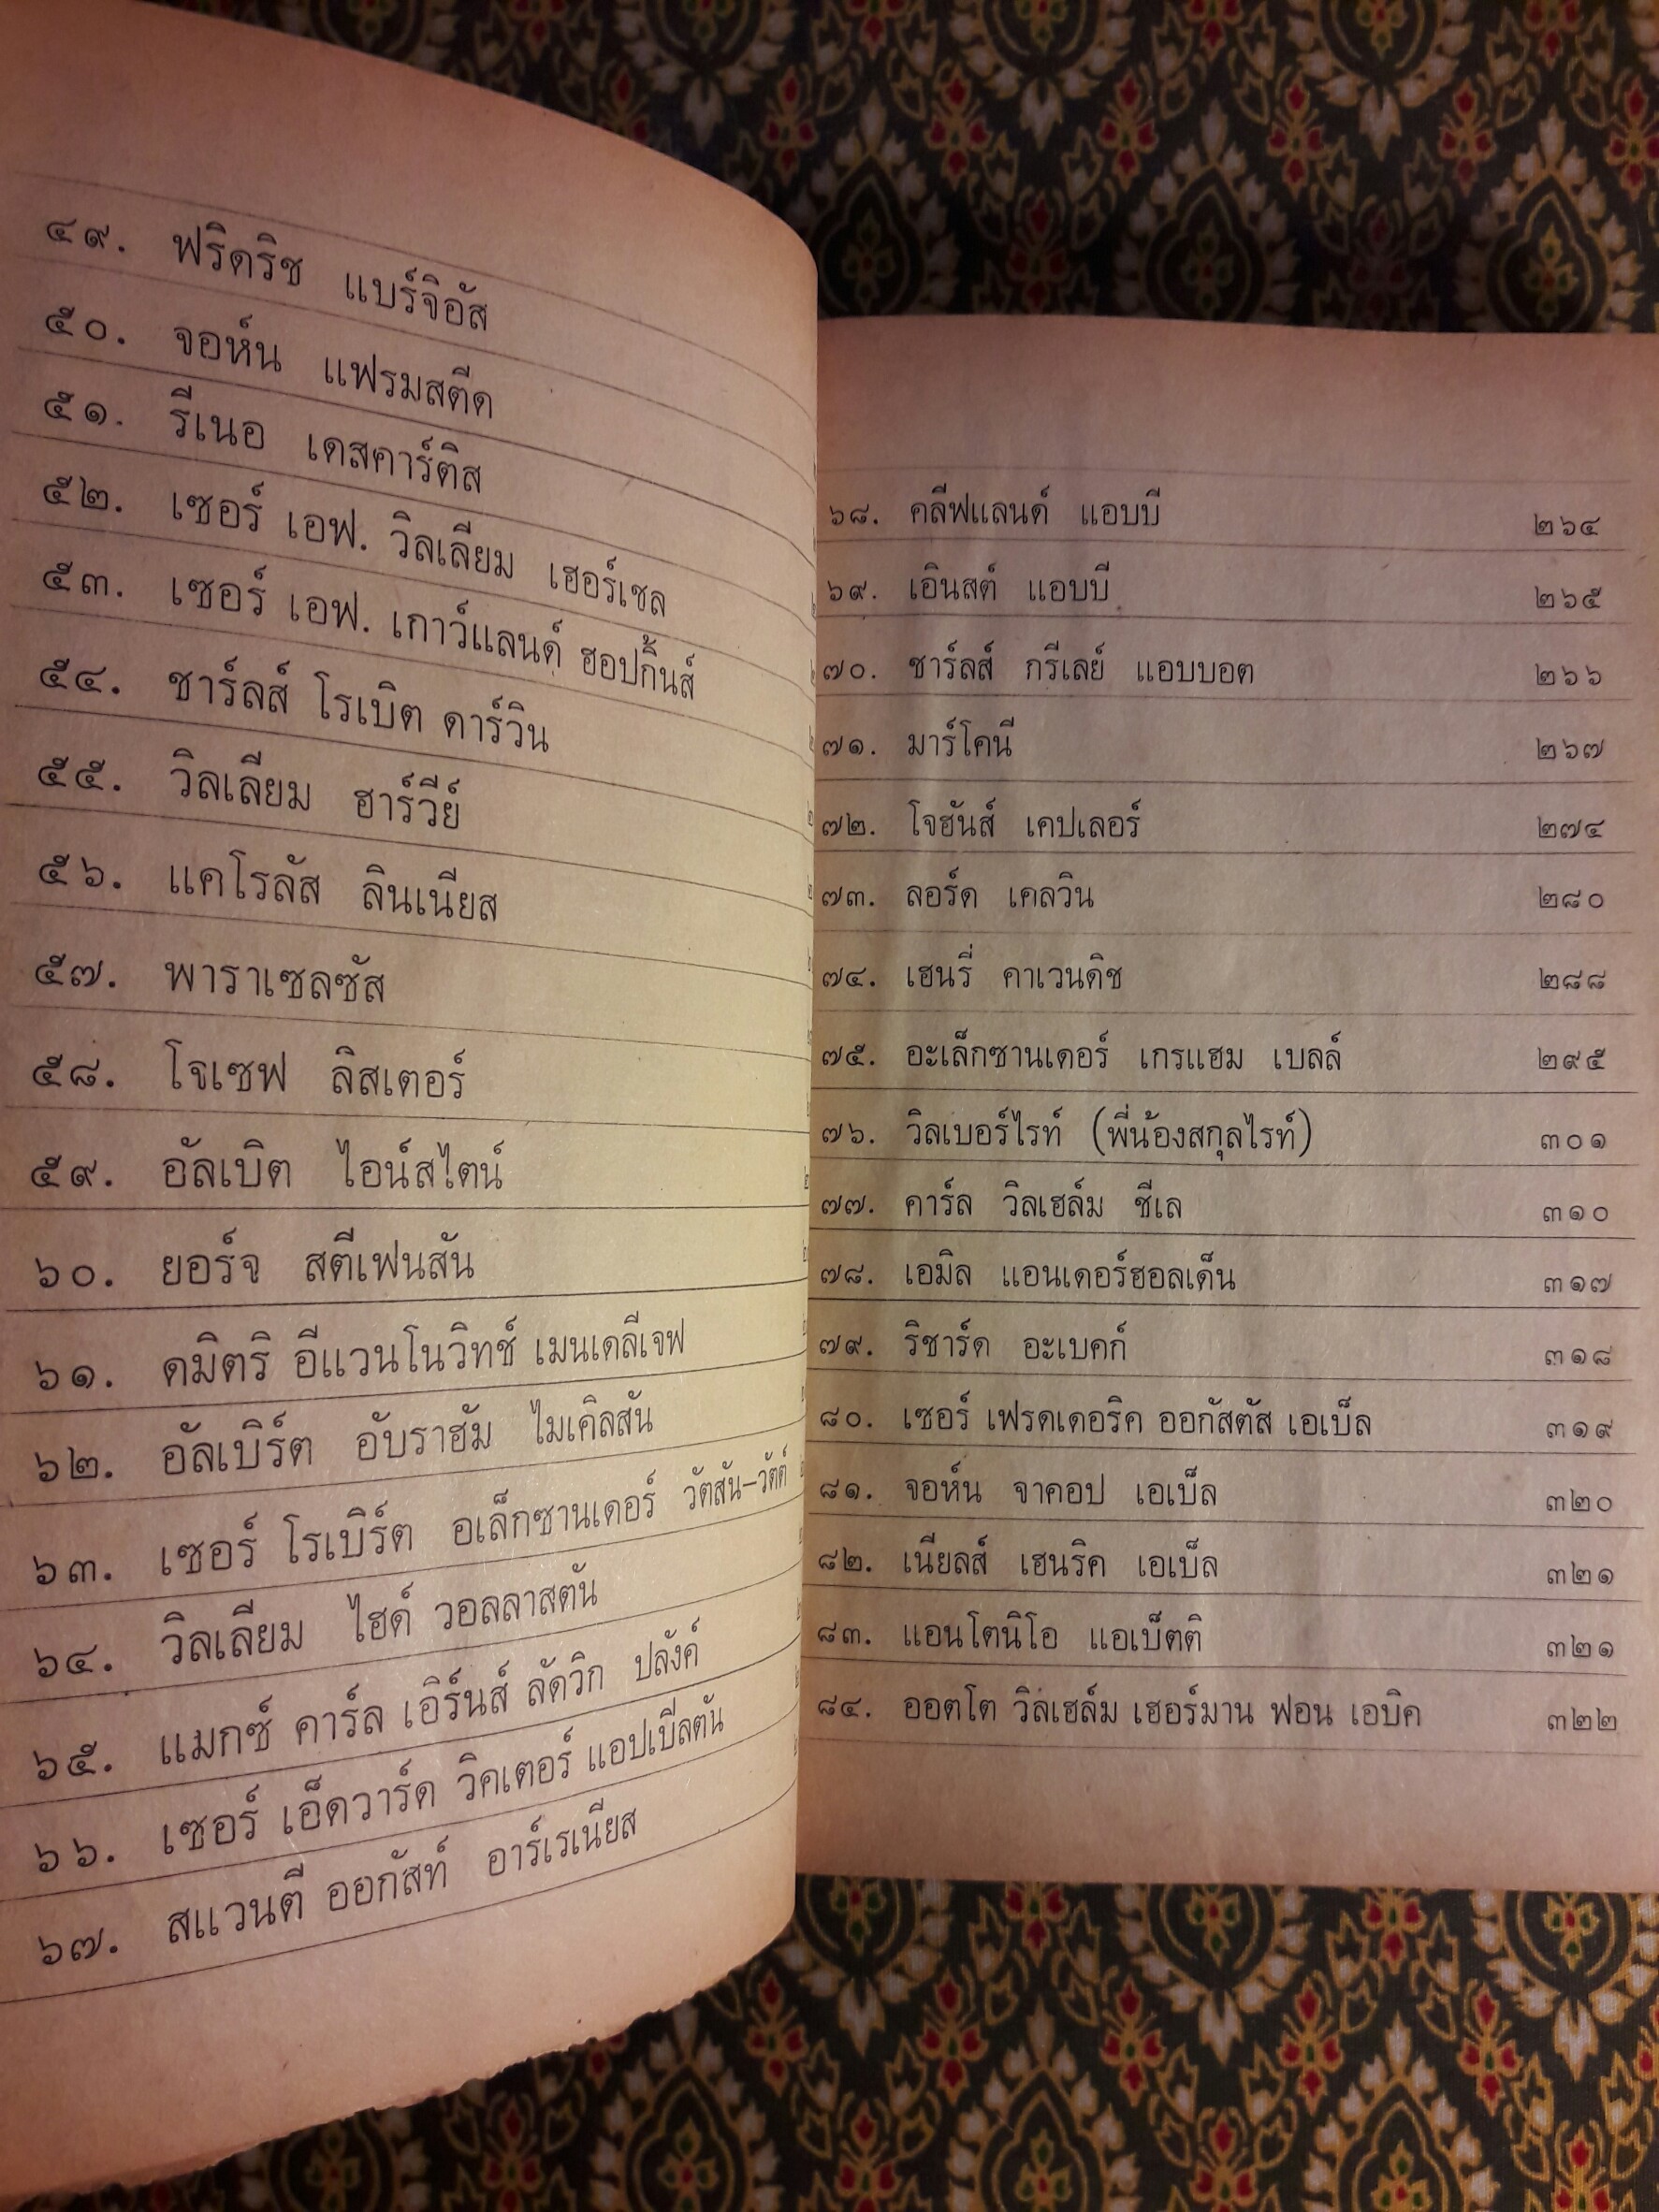 ๔๙. ฟริดริช แบร์จิอัส
๕๐. จอห์น แฟรมสตีด
๕๑. รีเนอ เดสคาร์ติส
๕๒. เซอร์ เอฟ. วิลเลียม เฮอร์เชล
๕๓. เซอร์ เอฟ. เกาว์แลนด์ ฮอปกิ้นส์
๕๔. ชาร์ลส์ โรเบิต ดาร์วิน
๕๕. วิลเลียม ฮาร์วีย์
๕๖. แคโรลัส ลินเนียส
๕๗. พาราเซลซัส
๕๘. โจเซฟ ลิสเตอร์
๕๙. อัลเบิต ไอน์สไตน์
๖๐. ยอร์จ สตีเฟนสัน
๖๑. ดมิตริ อีแวนโนวิทช์ เมนเดลีเจฟ
๖๒. อัลเบิร์ต อับราฮัม ไมเคิลสัน
๖๓. เซอร์ โรเบิร์ต อเล็กซานเดอร์ วัตสัน-วัตต์
๖๔. วิลเลียม ไฮด์ วอลลาสตัน
๖๕. แมกซ์ คาร์ล เอิร์นส์ ลัดวิก ปลังค์
๖๖. เซอร์ เอ็ดวาร์ด วิคเตอร์ แอปเปีลตัน
๖๗. สแวนตี ออกัสท์ อาร์เรเนียส
๖๘. คลีฟแลนด์ แอบบี ๒๖๔
๖๙. เอินสต์ แอบบี ๒๖๕
๗๐. ชาร์ลส์ กรีเลย์ แอบบอต ๒๖๖
๗๑. มาร์โคนี ๒๖๗
๗๒. โจฮันส์ เคปเลอร์ ๒๗๔
๗๓. ลอร์ด เคลวิน ๒๘๐
๗๔. เฮนรี่ คาเวนดิช ๒๘๘
๗๕. อะเล็กซานเดอร์ เกรแฮม เบลล์ ๒๙๕
๗๖. วิลเบอร์ไรท์ (พี่น้องสกุลไรท์) ๓๐๑
๗๗. คาร์ล วิลเฮล์ม ชีเล ๓๑๐
๗๘. เอมิล แอนเดอร์ฮอลเด็น ๓๑๗
๗๙. ริชาร์ด อะเบคก์ ๓๑๘
๘๐. เซอร์ เฟรดเดอริค ออกัสตัส เอเบ็ล ๓๑๙
๘๑. จอห์น จาคอป เอเบ็ล ๓๒๐
๘๒. เนียลส์ เฮนริค เอเบ็ล ๓๒๑
๘๓. แอนโตนิโอ แอเบ็ตติ ๓๒๑
๘๔. ออตโต วิลเฮล์ม เฮอร์มาน ฟอน เอบิค ๓๒๒